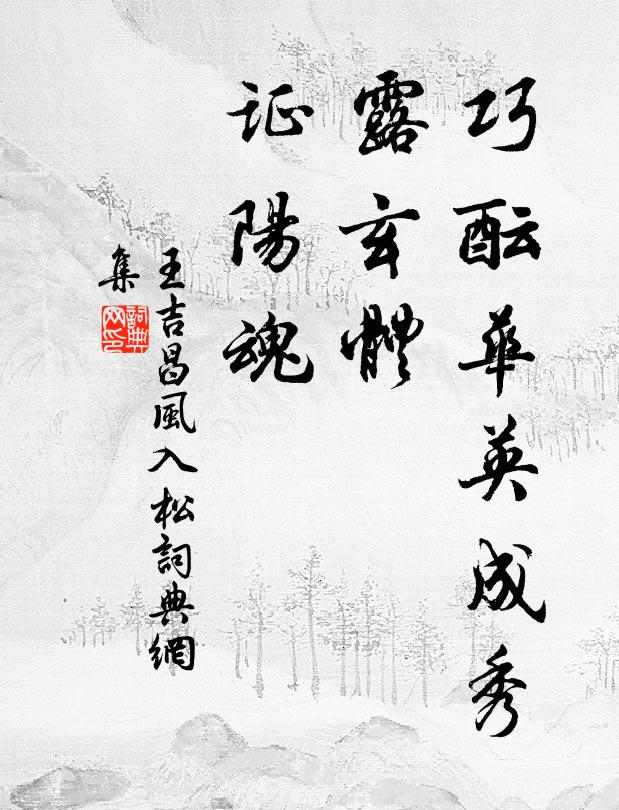 巧酝華英成秀
露玄體
证陽魂
王吉昌風入松詞典網
集
詞典
网印